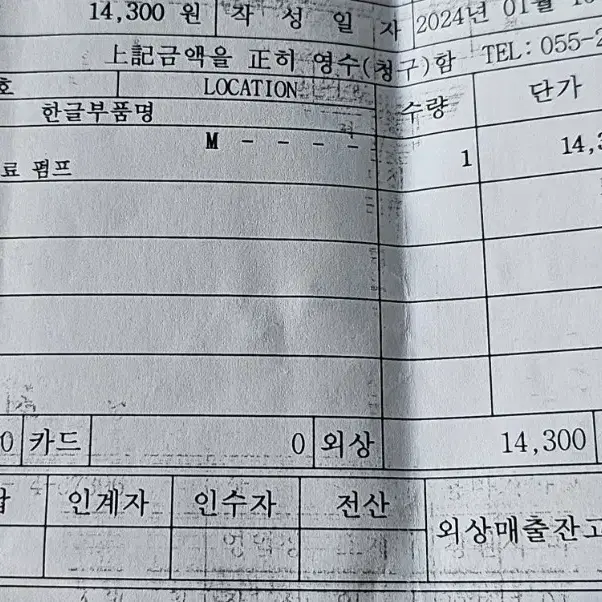 14,300 원 작 성 일 자 2024년 01월
上記금액을 正히 영수(청구)함 TEL: 055-2
호 LOCATION 수량 단가
한글부품명
M - - - - 1 14,3
료 펌프
0 카드 0 외상 14,300
인계자 인수자 전산 외상매출잔고